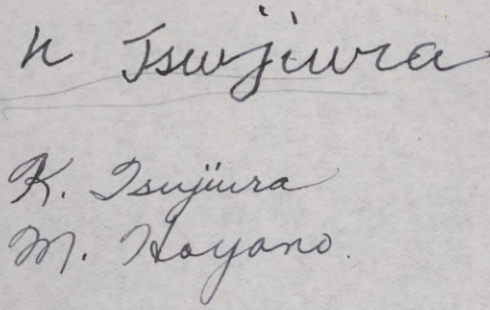 K Tsujiura
K. Tsujiura
M. Hayano.